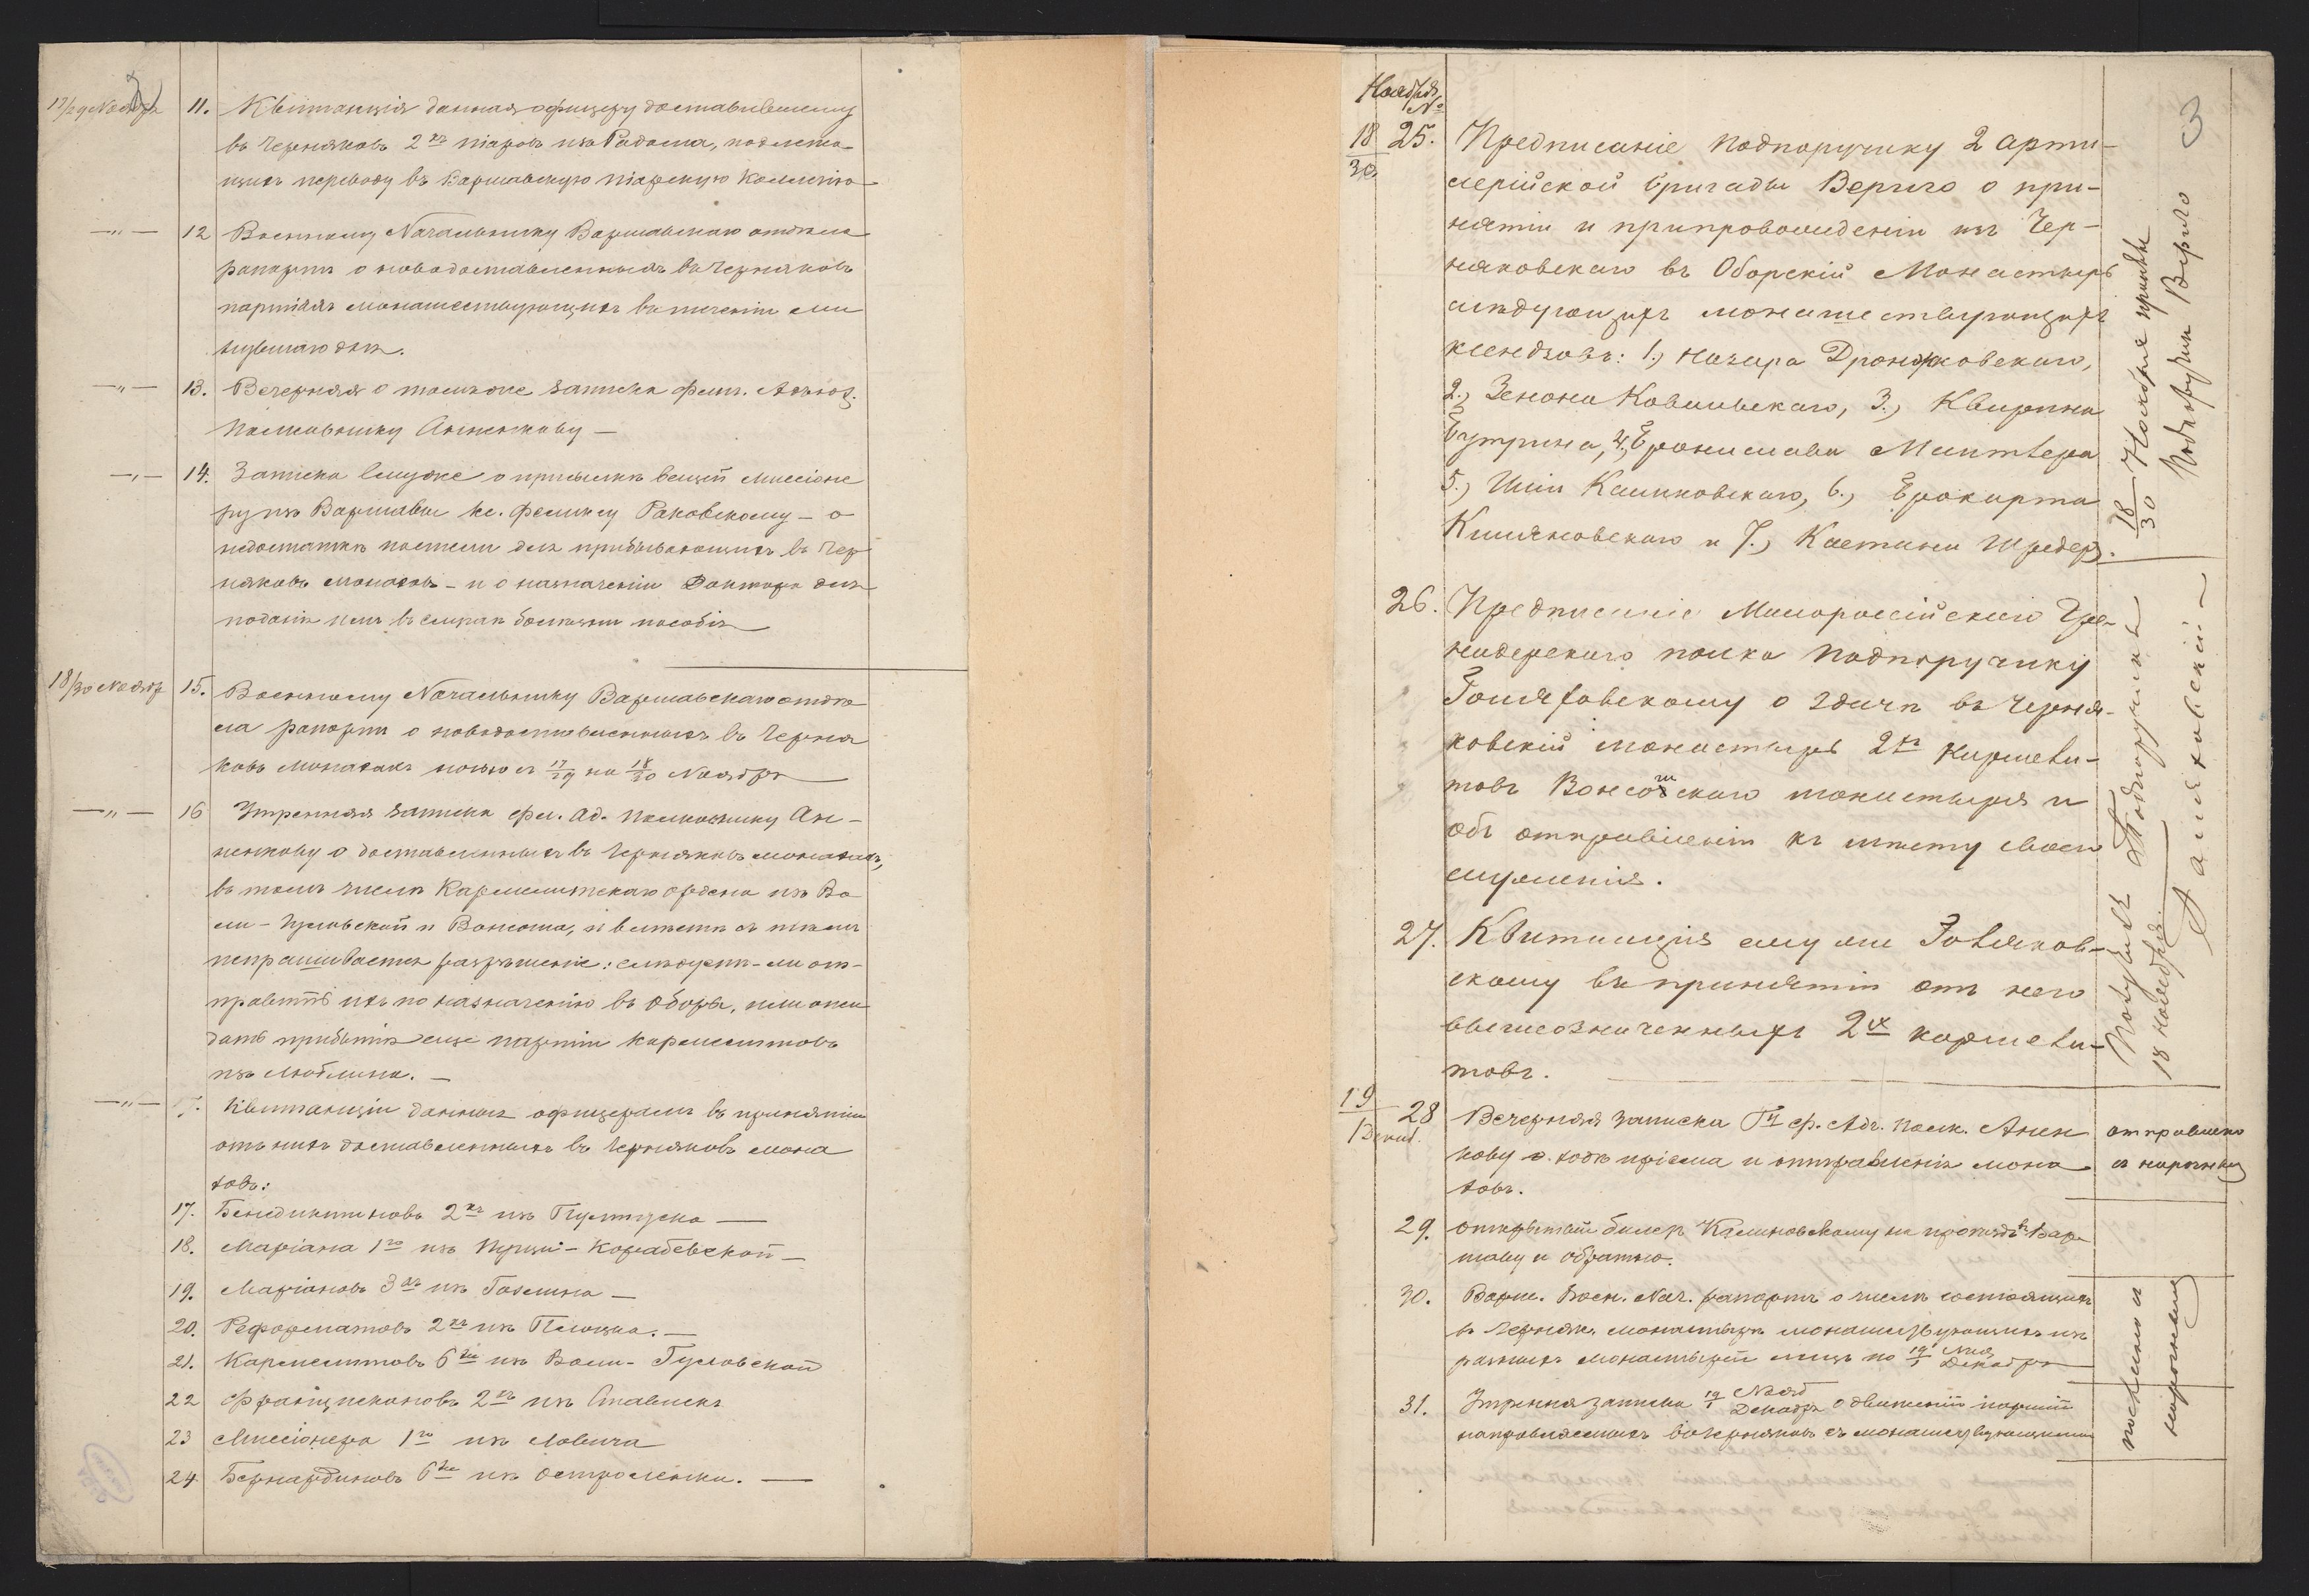 17/29 Ноября
11. Квитанція данная офицеру доставившему
въ Черняковъ 2хъ піаровъ изъ Радома, подлежа-
щихъ переводу въ Варшавскую піарскую Коллегію
—„— 12 Военному Начальнику Варшавскаго отдѣла
рапортъ о новодоставленныхъ въ Черняковъ
партіяхъ монашествующихъ въ теченіи
дня.
—„— 13. Вечерняя о томъ же записка флиг. Адъют.
Полковнику Анненкову —
—„— 14. Записка ему же о присылкѣ вещей Миссіоне
ру изъ Варшавы кс. Феликсу Раковскому — о
недостаткѣ постели для прибывающихъ въ Чер
няковъ монаховъ — и о назначеніи Доктора для
поданія имъ въ случаѣ болѣзни пособія
18/30 Ноябр
15. Военному Начальнику Варшавскаго отдѣ
ла рапортъ о новодоставленныхъ въ Черня
ковъ монахахъ ночью съ 17/29 на 18/30 Ноября
—„— 16 Утренняя записка фл. Ад. Полковнику Ан-
ненкову о доставленныхъ въ Черняковъ монахахъ,
въ томъ числѣ Кармелитскаго ордена изъ Во
ли-Гуловской и Вонсоша, и вмѣстѣ съ тѣмъ
испрашивается разрѣшеніе: слѣдуетъ-ли от-
править ихъ по назначенію въ Оборы, или ожи
дать прибытія еще партіи кармелитовъ
изъ Люблина. —
—„— Квитанціи данныя офицерамъ въ принятіи
отъ нихъ доставленныхъ въ Черняковъ мона
ховъ:
17. Бенедиктиновъ 2хъ изъ Пултуска —
18. Маріана 1го изъ Пущи-Корабевской —
19. Маріановъ 3хъ изъ Гозлина —
20. Реформатовъ 2хъ изъ Плоцка. —
21. Кармелитовъ 6ти изъ Воли-Гуловской
22 Францискановъ 2хъ изъ Ставискъ
23 Миссіонера 1го изъ Ловича
24. Бернардиновъ 6ти изъ Остроленки. —
3
Ноября
№
18/30 25. Предписаніе Подпоручику 2 арти-
лерійской бригады Вериго о при-
нятіи и припровожденіи изъ Чер-
няковскаго въ Оборскій Монастырь
слѣдующихъ монашествующихъ
ксендзовъ: 1.) Назара Дронжковскаго,
2.) Зенона Ковальскаго, 3.) Квирина
Бутрина, 4.) Бронислава
5.) Калиновскаго, 6.) Брокарта
и 7.) Каетана Шредера.
18/30 Ноября
Подпоручикъ Вериго
26. Предписаніе Малороссійскаго Гре-
надерскаго полка Подпоручику
о здачѣ въ Черня-
ковскій монастырь 2хъ кармели-
товъ Вонсошскаго монастыря и
объ отправленіи къ мѣсту своего
служенія.
27. Квитанція ему же
скому въ принятіи отъ него
вышеозначенныхъ 2хъ кармели-
товъ.
Подпоручикъ
18 Ноября.
19
1 Декаб.
28 Вечерняя записка Гу ф. Адъ. Полк. Аннен
кову о ходѣ пріема и отправленія мона
ховъ.
отправлено
съ нарочнымъ
29. Открытый билетъ Калиновскому на проѣздъ въ Вар
шаву и обратно.
30. Варш. Воен. Нач. рапортъ о числѣ состоящихъ
въ Черняк. монастырѣ монашествующихъ изъ
разныхъ монастырей лицъ по 19/1 Декабря
31. Утренняя записка 19/1 Нояб Декабря о движеніи партій
направляемыхъ въ Черняковъ съ монашествующими
послано съ
нарочнымъ